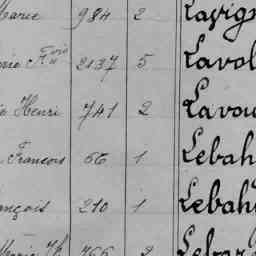 Marie 984 2 Lavign
rie Fcois 2137 5 Lavol
e Henri 741 2 Lavou
François 66 1 Lebah
ançois 210 1 Lebah
Marie Th 766 2 Lebar